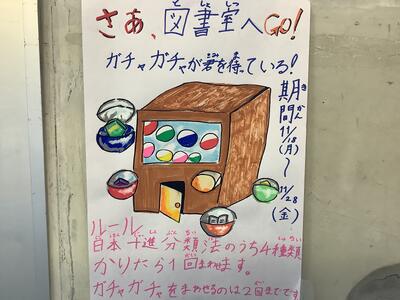 さあ、図書室へGO!
としょしつ
ガチャガチャが君を待ている!
きみ
期間
きかん
11/18(月)
～
11/28(金)
ルール
日本十進分類法のうち4種類
かりたら1回まわせます。
ガチャガチャをまわせるのは2回までです